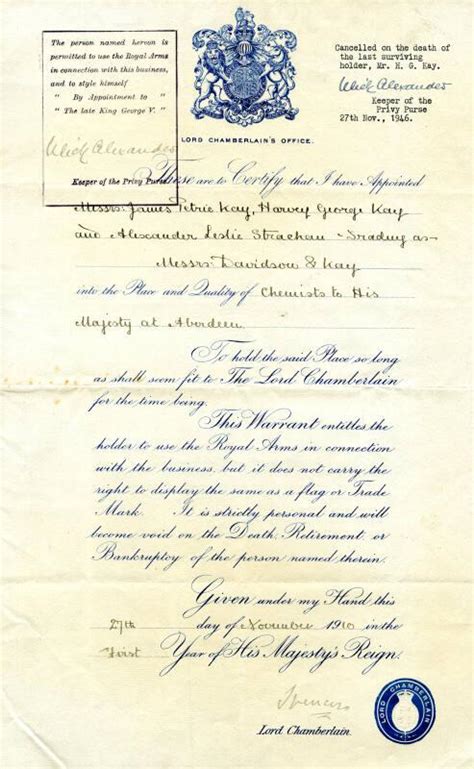 The person named hereon is
permitted to use the Royal Arms
in connection with this business,
and to style himself
" By Appointment to "
" The late King George V. "
Ulick Alexander
Keeper of the Privy Purse
Cancelled on the death of
the last surviving
holder, Mr. H. G. Kay.
Ulick Alexander
Keeper of the
Privy Purse
27th Nov., 1946.
LORD CHAMBERLAIN'S OFFICE.
These are to Certify that I have Appointed
Messrs: James Petrie Kay, Harvey George Kay
and Alexander Leslie Strachan - Trading as -
Messrs: Davidson & Kay
into the Place and Quality of Chemists to His
Majesty at Aberdeen.
To hold the said Place so long
as shall seem fit to The Lord Chamberlain
for the time being.
This Warrant entitles the
holder to use the Royal Arms in connection
with the business, but it does not carry the
right to display the same as a flag or Trade
Mark. It is strictly personal and will
become void on the Death, Retirement, or
Bankruptcy of the person named therein.
Given under my Hand this
27th day of November 1910 in the
First Year of His Majesty's Reign.
Spencer
Lord Chamberlain.
LORD CHAMBERLAIN